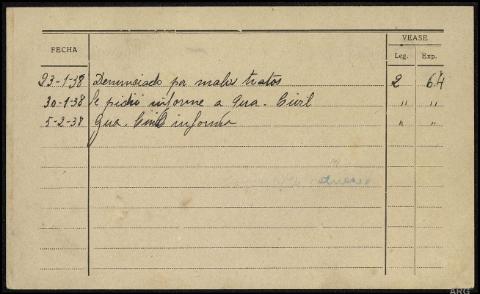 VEASE
FECHA Leg. Exp.
23-1-38 Denunciado por malos tratos 2 64
30-1-38 Se pidió informe a Gua. Civil " "
5-2-38 Gua. Civil informa " "
ARG